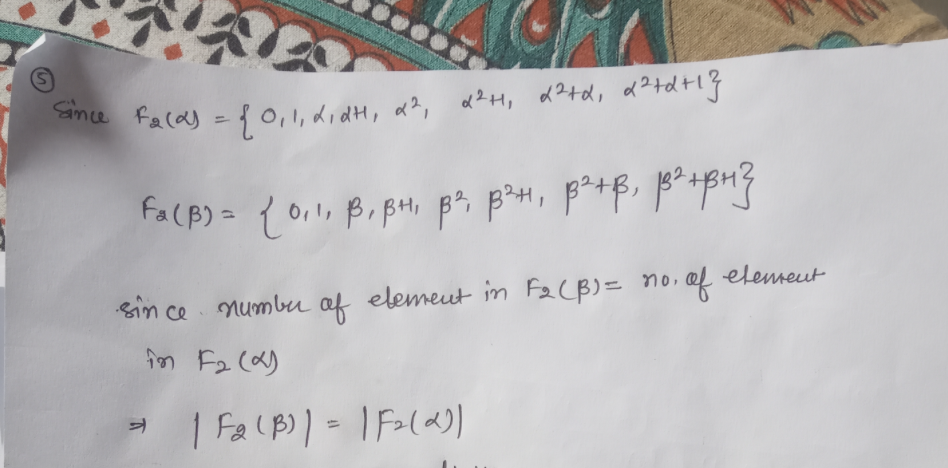 ⑤
Since F₂(α) = { 0, 1, α, α+1, α², α²+1, α²+α, α²+α+1 }
F₂(β) = { 0, 1, β, β+1, β², β²+1, β²+β, β²+β+1 }
since number of element in F₂(β) = no. of element
in F₂(α)
⇒ | F₂(β) | = | F₂(α) |